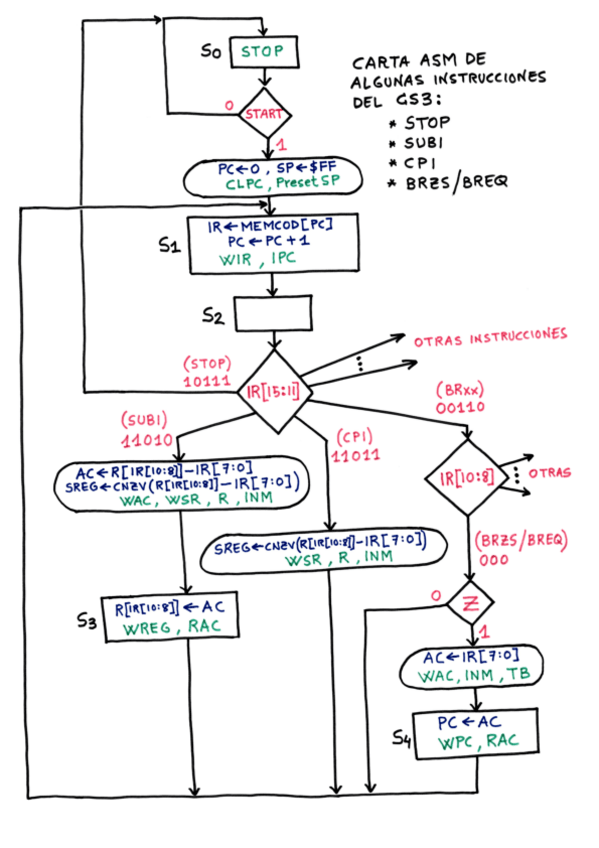 S0
STOP
CARTA ASM DE
ALGUNAS INSTRUCCIONES
DEL CS3:
* STOP
* SUBI
* CPI
* BRZS/BREQ
0
START
1
PC←0, SP←$FF
CLPC, Preset SP
S1
IR←MEMCOD[PC]
PC←PC+1
WIR, IPC
S2
OTRAS INSTRUCCIONES
(STOP)
10111
IR[15:11]
(BRxx)
00110
(SUBI)
11010
(CPI)
11011
AC←R[IR[10:8]]-IR[7:0]
SREG←CNZV(R[IR[10:8]]-IR[7:0])
WAC, WSR, R, INM
IR[10:8]
OTRAS
SREG←CNZV(R[IR[10:8]]-IR[7:0])
WSR, R, INM
(BRZS/BREQ)
000
0
Z
1
S3
R[IR[10:8]]←AC
WREG, RAC
AC←IR[7:0]
WAC, INM, TB
S4
PC←AC
WPC, RAC